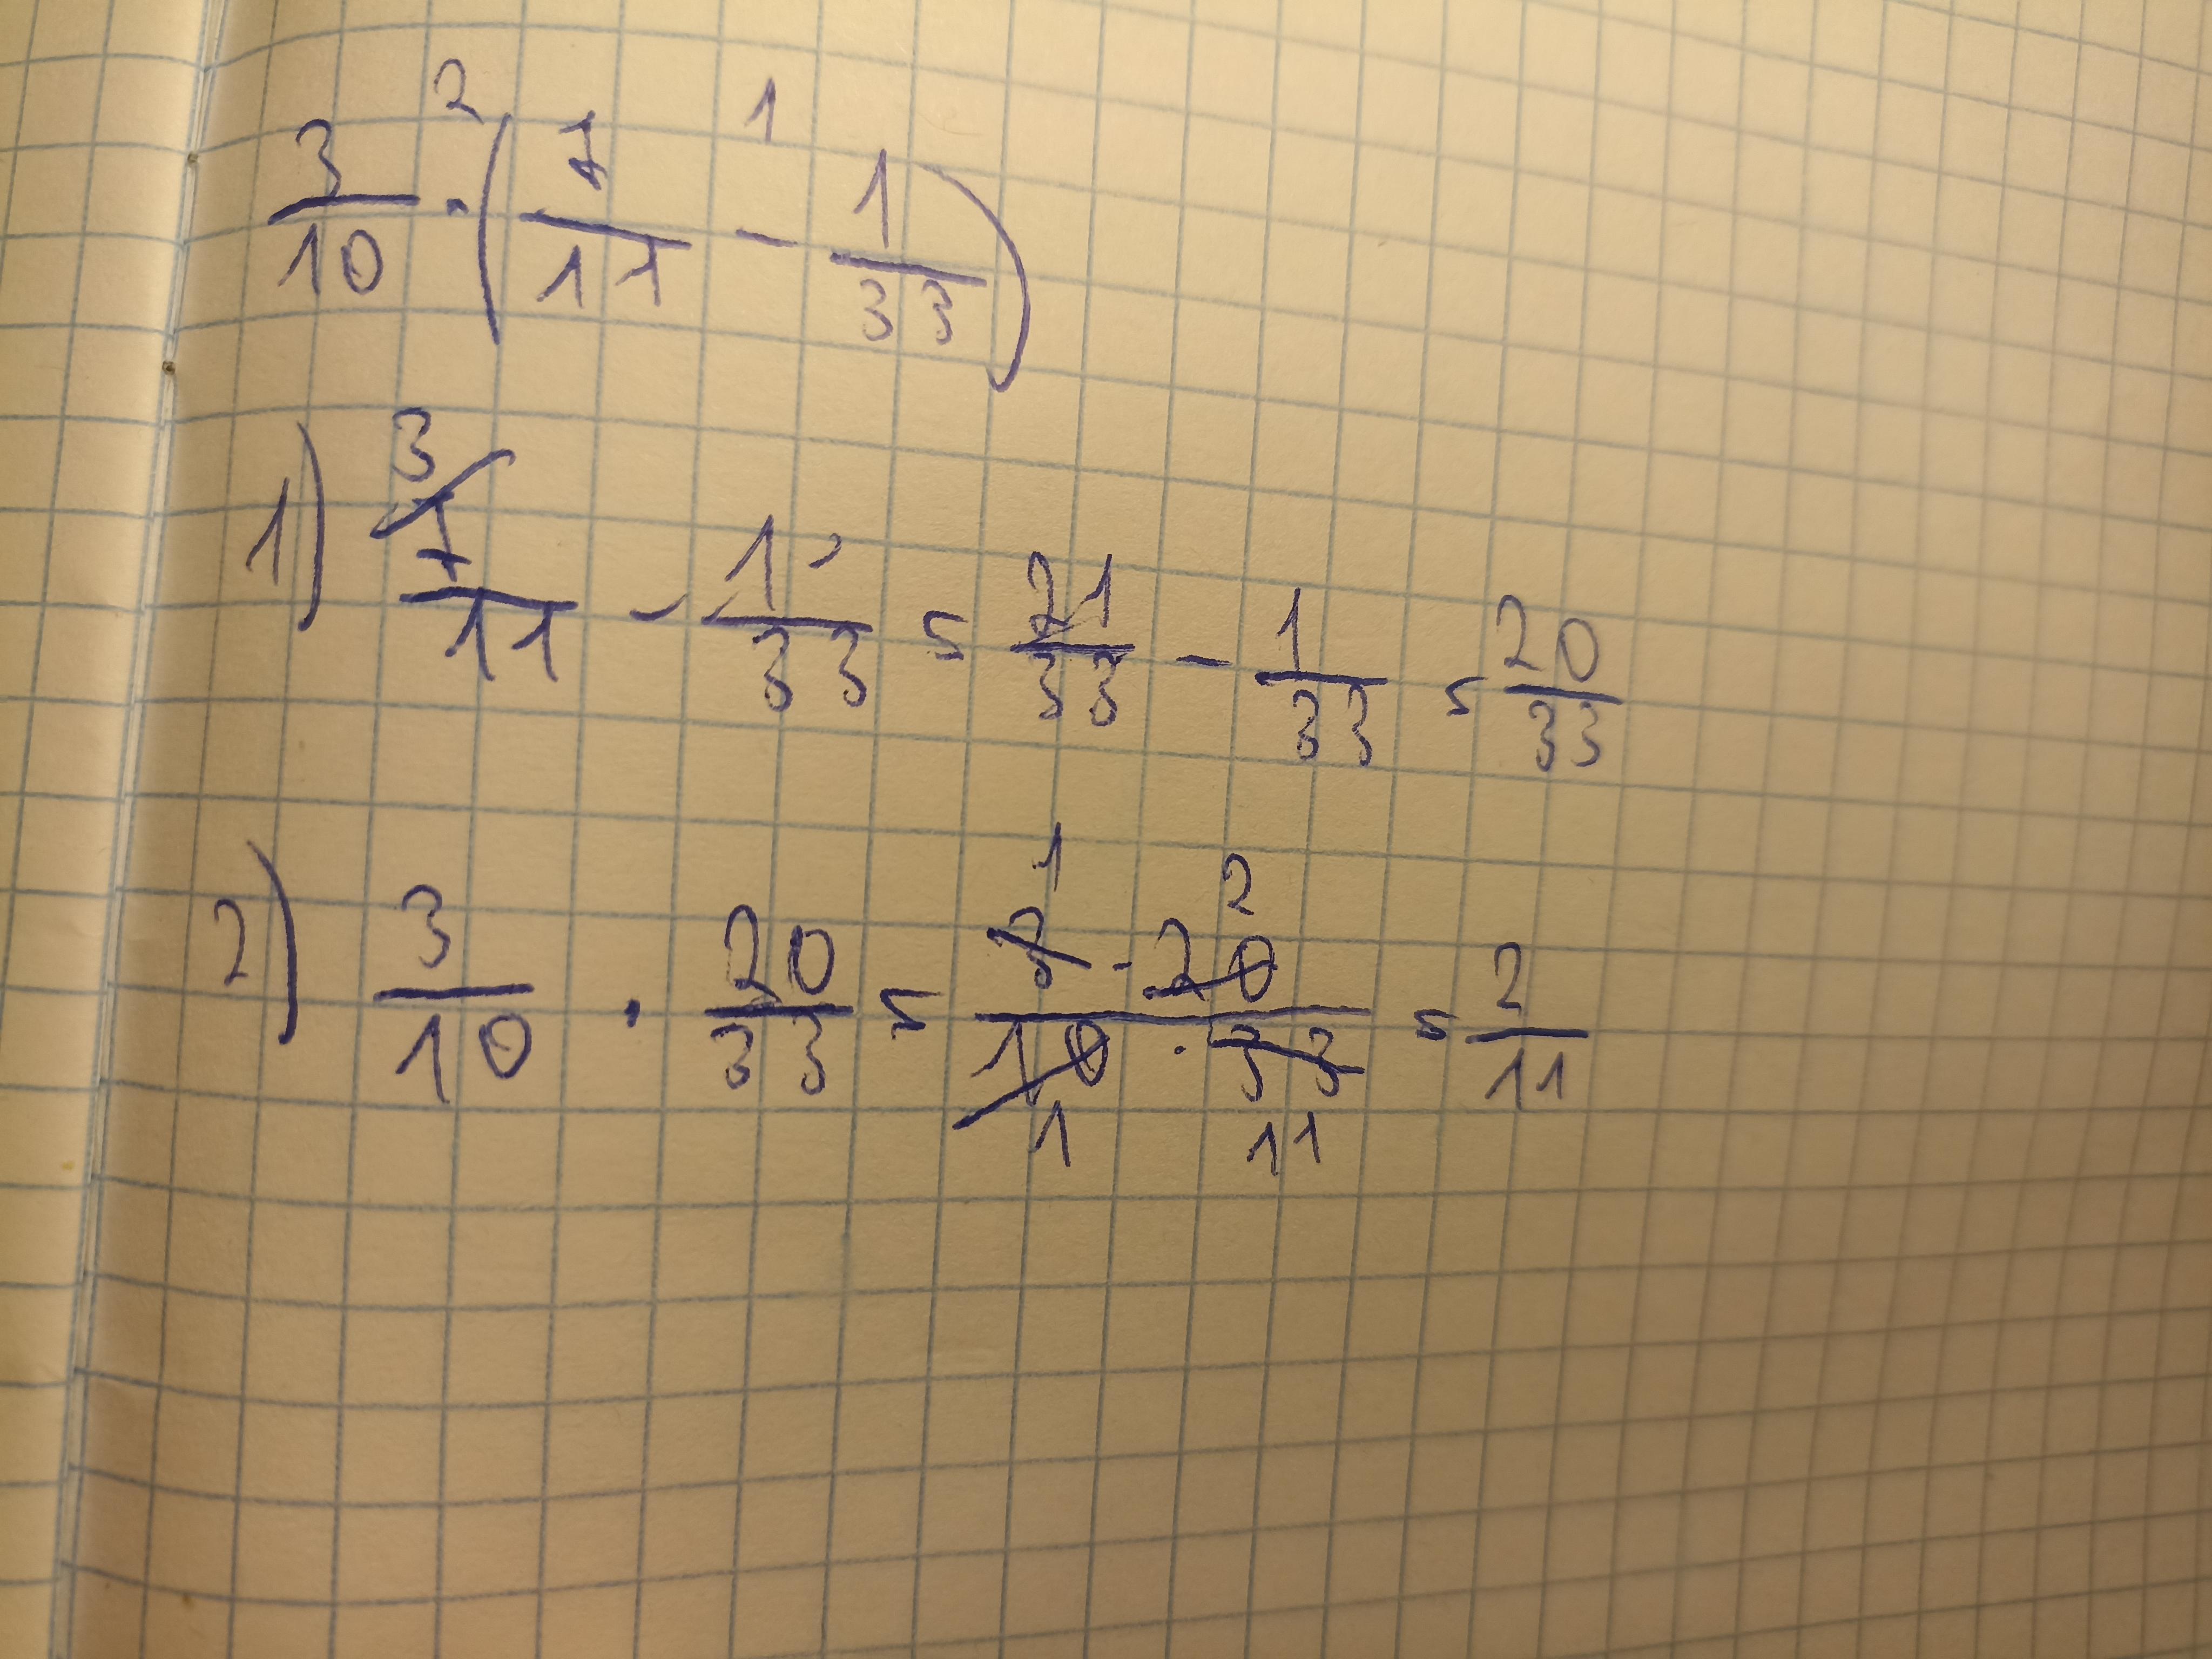 3/10 ·² (7/11 -¹ 1/33)
1) 7/11 ³ - 1/33 = 21/33 - 1/33 = 20/33
2) 3/10 · 20/33 = 3 ¹ · 20 ² / 10 ₁ · 33 ₁₁ = 2/11